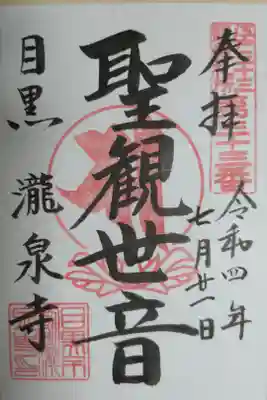 奉拝
令和四年
七月廿一日
聖観世音
目黒 瀧泉寺